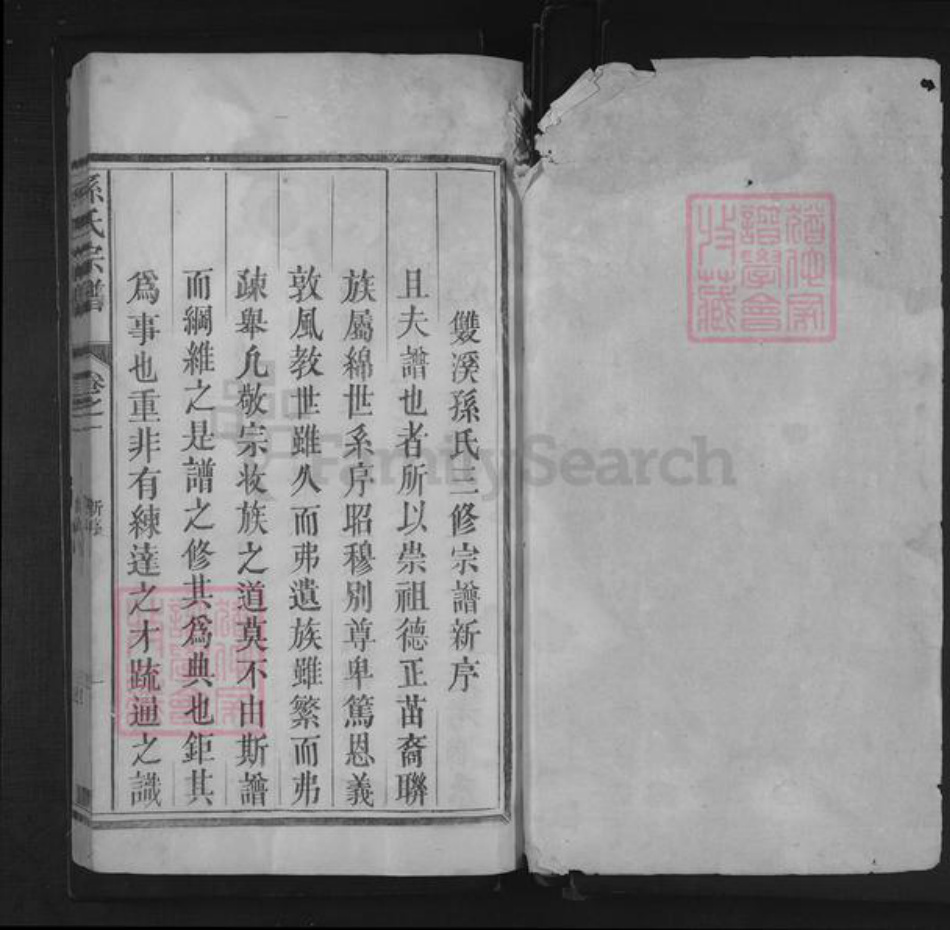 雙溪孫氏三修宗譜新序
且夫譜也者所以崇祖德正苗裔聯
族屬綿世系序昭穆別尊卑篤恩義
敦風教世雖久而弗遺族雖繁而弗
疎舉凢敬宗收族之道莫不由斯譜
而綱維之是譜之修其爲典也鉅其
爲事也重非有練達之才疏通之識
孫氏宗譜
卷之一
新序
譜學會
收藏
FamilySearch